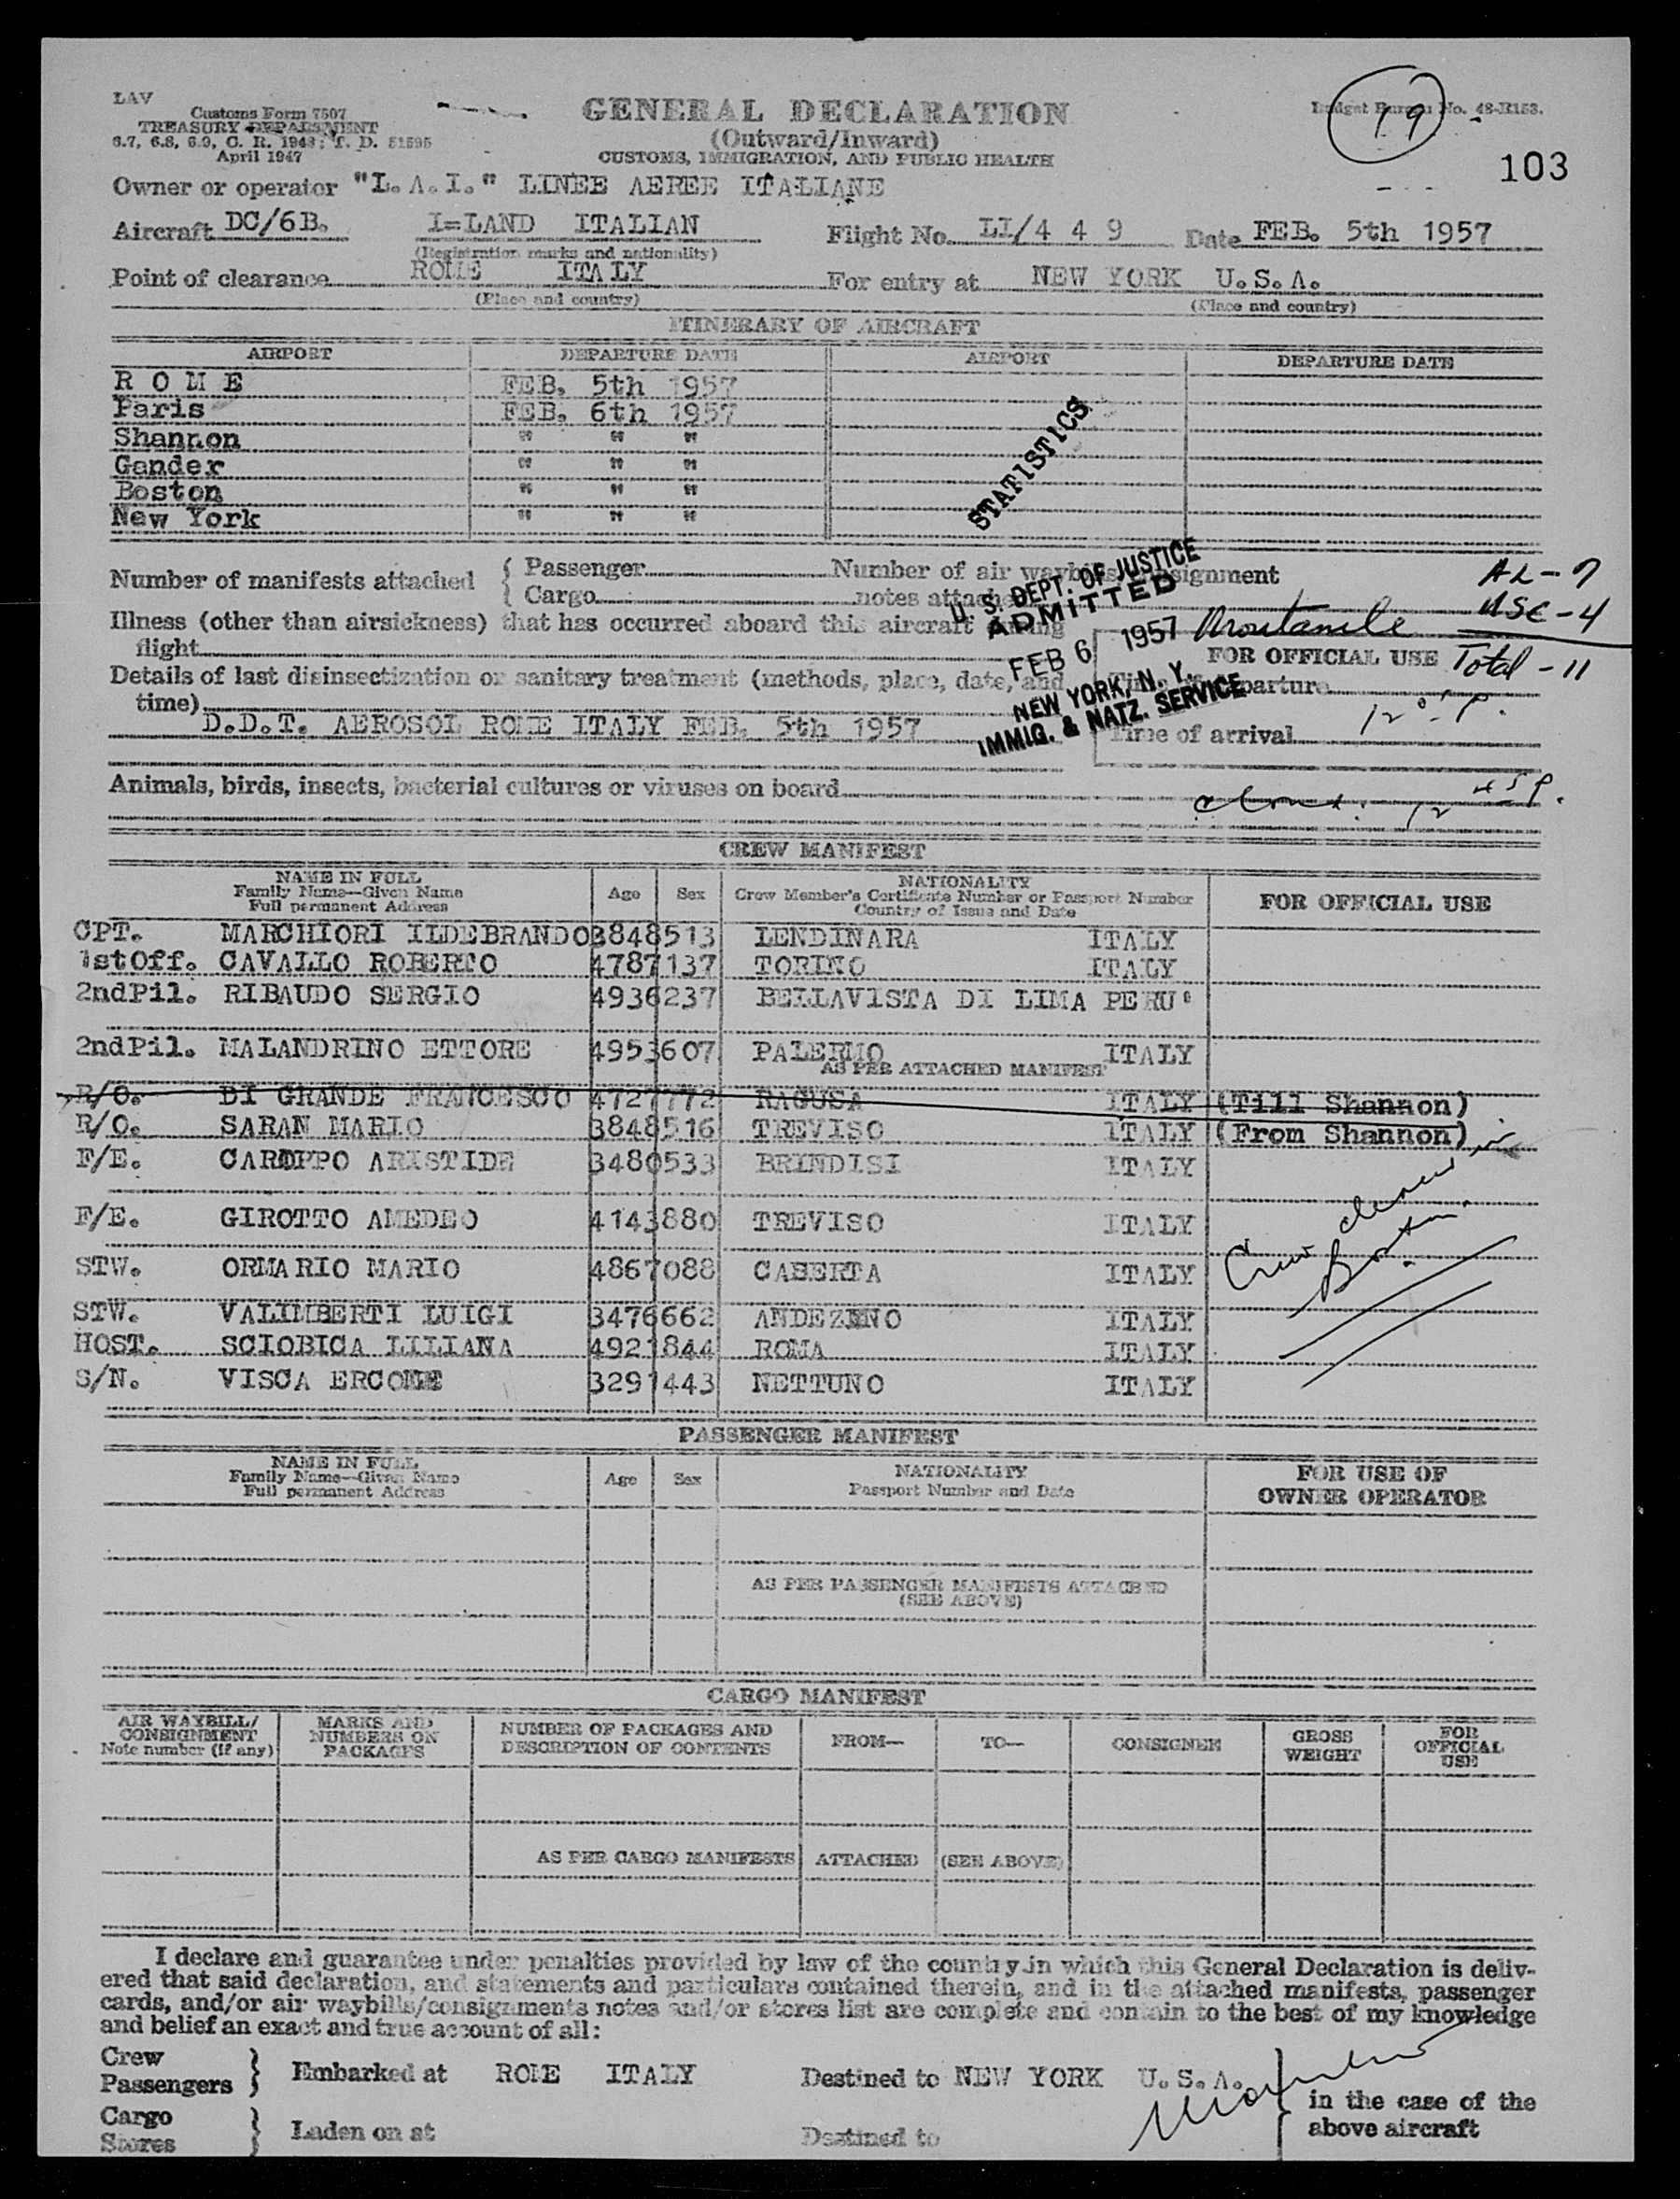 LAV
Customs Form 7507
TREASURY DEPARTMENT
6.7, 6.8, 6.9, C. R. 1943; T. D. 51595
April 1947
GENERAL DECLARATION
(Outward/Inward)
CUSTOMS, IMMIGRATION, AND PUBLIC HEALTH
Budget Bureau No. 48-R153.
19
103
Owner or operator "L.A.I." LINEE AEREE ITALIANE
Aircraft DC/6B. I=LAND ITALIAN Flight No. LI/4 4 9 Date FEB. 5th 1957
(Registration marks and nationality)
Point of clearance ROME ITALY For entry at NEW YORK U.S.A.
(Place and country) (Place and country)
ITINERARY OF AIRCRAFT
AIRPORT DEPARTURE DATE AIRPORT DEPARTURE DATE
R O M E FEB. 5th 1957
Paris FEB. 6th 1957
Shannon " " "
Gander " " "
Boston " " "
New York " " "
STATISTICS
Number of manifests attached { Passenger Number of air waybills/consignment
Cargo notes attached
AL-7
USC-4
Total-11
Illness (other than airsickness) that has occurred aboard this aircraft during
flight
U. S. DEPT. OF JUSTICE
ADMITTED
FEB 6 1957
NEW YORK, N. Y.
IMMIG. & NATZ. SERVICE
FOR OFFICIAL USE
Details of last disinsectization or sanitary treatment (methods, place, date, and
time)
D.D.T. AEROSOL ROME ITALY FEB. 5th 1957
Time of departure
Time of arrival 12 P.
Animals, birds, insects, bacterial cultures or viruses on board
12 45 P.
CREW MANIFEST
NAME IN FULL
Family Name—Given Name
Full permanent Address
Age Sex
NATIONALITY
Crew Member's Certificate Number or Passport Number
Country of Issue and Date
FOR OFFICIAL USE
CPT. MARCHIORI ILDEBRANDO 3848513 LENDINARA ITALY
1stOff. CAVALLO ROBERTO 4787137 TORINO ITALY
2ndPil. RIBAUDO SERGIO 4936237 BELLAVISTA DI LIMA PERU'
2ndPil. MALANDRINO ETTORE 4953607 PALERMO ITALY
AS PER ATTACHED MANIFEST
R/O. DI GRANDE FRANCESCO 4727772 RAGUSA ITALY (Till Shannon)
R/O. SARAN MARIO 3848516 TREVISO ITALY (From Shannon)
F/E. CAROPPO ARISTIDE 3480533 BRINDISI ITALY
F/E. GIROTTO AMEDEO 4143880 TREVISO ITALY
STW. ORMARIO MARIO 4867088 CASERTA ITALY
STW. VALIMBERTI LUIGI 3476662 ANDEZENO ITALY
HOST. SCIOBICA LILIANA 4921844 ROMA ITALY
S/N. VISCA ERCOLE 3291443 NETTUNO ITALY
Crew cleared in
Boston.
PASSENGER MANIFEST
NAME IN FULL
Family Name—Given Name
Full permanent Address
Age Sex
NATIONALITY
Passport Number and Date
FOR USE OF
OWNER OPERATOR
AS PER PASSENGER MANIFESTS ATTACHED
(SEE ABOVE)
CARGO MANIFEST
AIR WAYBILL/
CONSIGNMENT
Note number (if any)
MARKS AND
NUMBERS ON
PACKAGES
NUMBER OF PACKAGES AND
DESCRIPTION OF CONTENTS
FROM— TO— CONSIGNEE
GROSS
WEIGHT
FOR
OFFICIAL
USE
AS PER CARGO MANIFESTS ATTACHED (SEE ABOVE)
I declare and guarantee under penalties provided by law of the country in which this General Declaration is deliv-
ered that said declaration, and statements and particulars contained therein, and in the attached manifests, passenger
cards, and/or air waybills/consignments notes and/or stores list are complete and contain to the best of my knowledge
and belief an exact and true account of all:
Crew
Passengers } Embarked at ROME ITALY Destined to NEW YORK U.S.A.
Cargo
Stores } Laden on at Destined to
in the case of the
above aircraft